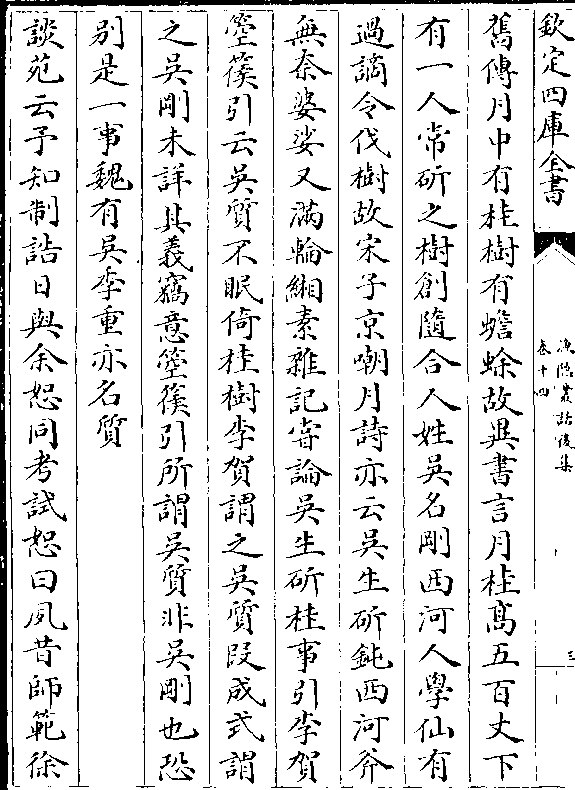 欽定四庫全書
漁隱叢話後集
卷十四
三
舊傳月中有桂樹有蟾蜍故異書言月桂髙五百丈下
有一人常斫之樹創隨合人姓吳名剛西河人學仙有
過謫令伐樹故宋子京嘲月詩亦云吳生斫鈍西河斧
無奈婆娑又滿輪緗素雜記寄論吳生斫桂事引李賀
箜篌引云吳質不眠倚桂樹李賀謂之吳質段成式謂
之吳剛未詳其義竊意箜篌引所謂吳質非吳剛也恐
别是一事魏有吳季重亦名質
談苑云予知制誥日與余恕同考試恕曰夙昔師範徐